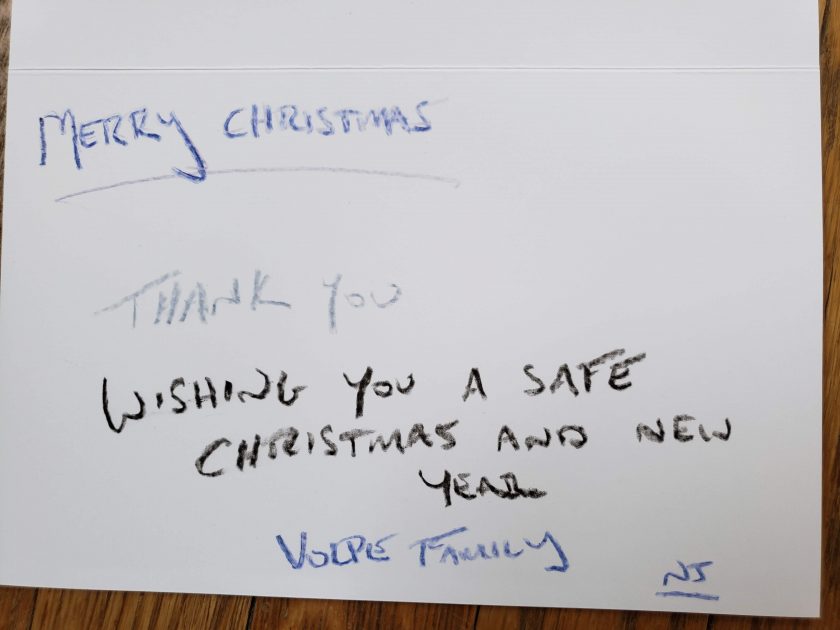 MERRY CHRISTMAS
THANK YOU
WISHING YOU A SAFE
CHRISTMAS AND NEW
YEAR
VOLPE FAMILY